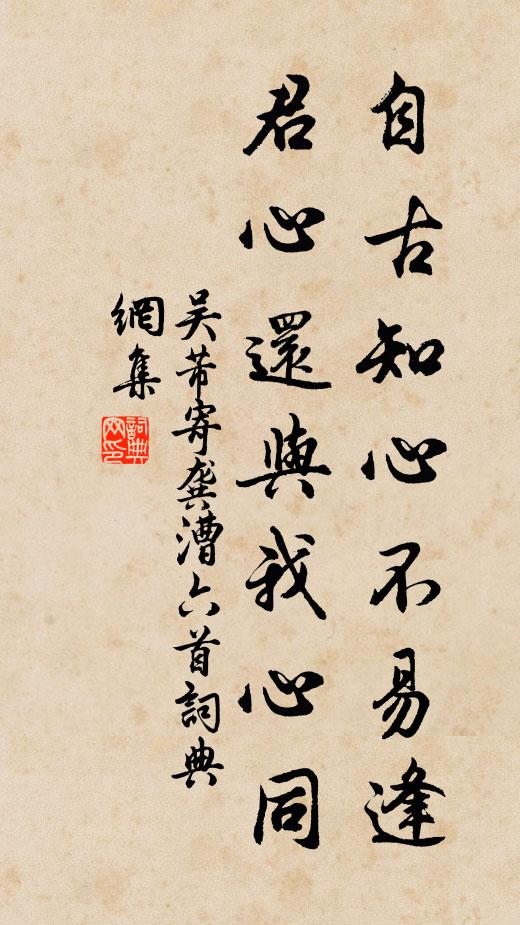 自古知心不易逢
君心還與我心同
吳芾寄龔漕六首詞典
網集
詞典網印